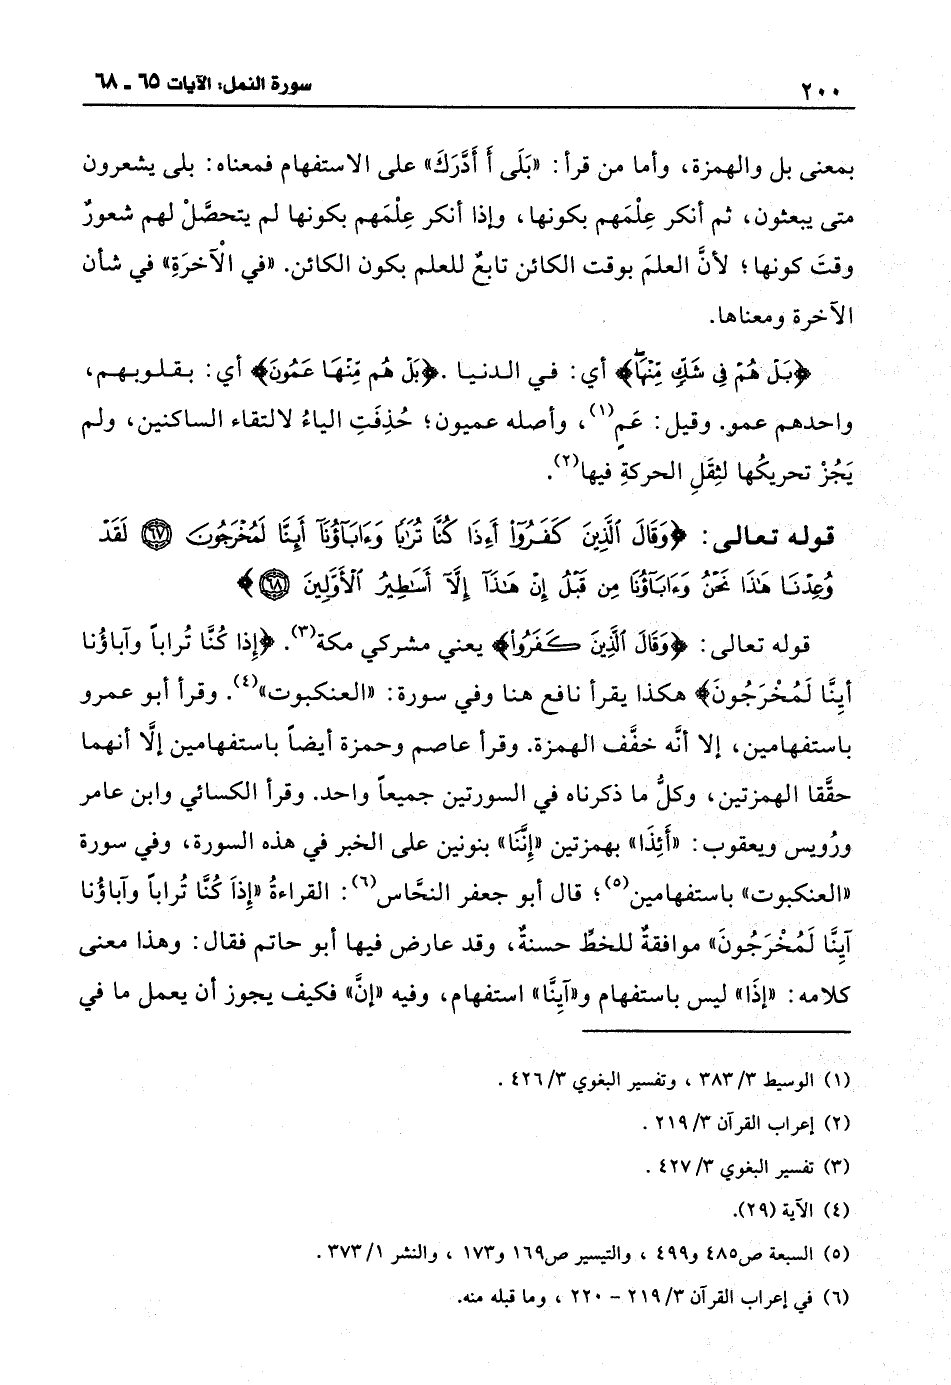 ٢٠٠
سورة النمل: الآيات ٦٥ ـ ٦٨
بمعنى بل والهمزة، وأما من قرأ: «بَلَى أَ أَدَّرَكَ» على الاستفهام فمعناه: بلى يشعرون
متى يبعثون، ثم أنكر عِلْمَهم بكونها، وإذا أنكر عِلْمَهم بكونها لم يتحصَّلْ لهم شعورٌ
وقتَ كونها؛ لأنَّ العلمَ بوقت الكائن تابعٌ للعلم بكون الكائن. «في الْآخرَةِ» في شأن
الآخرة ومعناها.
﴿بَلْ هُمْ فِي شَكٍّ مِّنْهَاۖ﴾ أي: في الدنيا. ﴿بَلْ هُم مِّنْهَا عَمُونَ﴾ أي: بقلوبهم،
واحدهم عمو. وقيل: عَمٍ(١)، وأصله عميون؛ حُذِفَتِ الياءُ لالتقاء الساكنين، ولم
يَجُزْ تحريكُها لثِقَلِ الحركةِ فيها(٢).
قوله تعالى: ﴿وَقَالَ ٱلَّذِينَ كَفَرُوٓاْ أَءِذَا كُنَّا تُرَٰبًا وَءَابَآؤُنَآ أَئِنَّا لَمُخْرَجُونَ ٦٧ لَقَدْ
وُعِدْنَا هَٰذَا نَحْنُ وَءَابَآؤُنَا مِن قَبْلُ إِنْ هَٰذَآ إِلَّآ أَسَٰطِيرُ ٱلْأَوَّلِينَ ٦٨﴾
قوله تعالى: ﴿وَقَالَ ٱلَّذِينَ كَفَرُوٓاْ﴾ يعني مشركي مكة(٣). ﴿إِذا كُنَّا تُراباً وآباؤُنا
آيِنَّا لَمُخْرَجُونَ﴾ هكذا يقرأ نافع هنا وفي سورة: «العنكبوت»(٤). وقرأ أبو عمرو
باستفهامين، إلا أنَّه خفَّف الهمزة. وقرأ عاصم وحمزة أيضاً باستفهامين إلَّا أنهما
حقَّقا الهمزتين، وكلُّ ما ذكرناه في السورتين جميعاً واحد. وقرأ الكسائي وابن عامر
ورُويس ويعقوب: «أَئِذَا» بهمزتين «إِنَّنَا» بنونين على الخبر في هذه السورة، وفي سورة
«العنكبوت» باستفهامين(٥)؛ قال أبو جعفر النحَّاس(٦): القراءةُ «إِذَا كُنَّا تُراباً وآباؤُنا
آيِنَّا لَمُخْرَجُونَ» موافقةٌ للخطِّ حسنةٌ، وقد عارض فيها أبو حاتم فقال: وهذا معنى
كلامه: «إِذَا» ليس باستفهام و«آيِنَّا» استفهام، وفيه «إنَّ» فكيف يجوز أن يعمل ما في
(١) الوسيط ٣/ ٣٨٣ ، وتفسير البغوي ٣/ ٤٢٦ .
(٢) إعراب القرآن ٣/ ٢١٩ .
(٣) تفسير البغوي ٣/ ٤٢٧ .
(٤) الآية (٢٩).
(٥) السبعة ص٤٨٥ و٤٩٩ ، والتيسير ص١٦٩ و١٧٣ ، والنشر ١/ ٣٧٣ .
(٦) في إعراب القرآن ٣/ ٢١٩ - ٢٢٠ ، وما قبله منه.